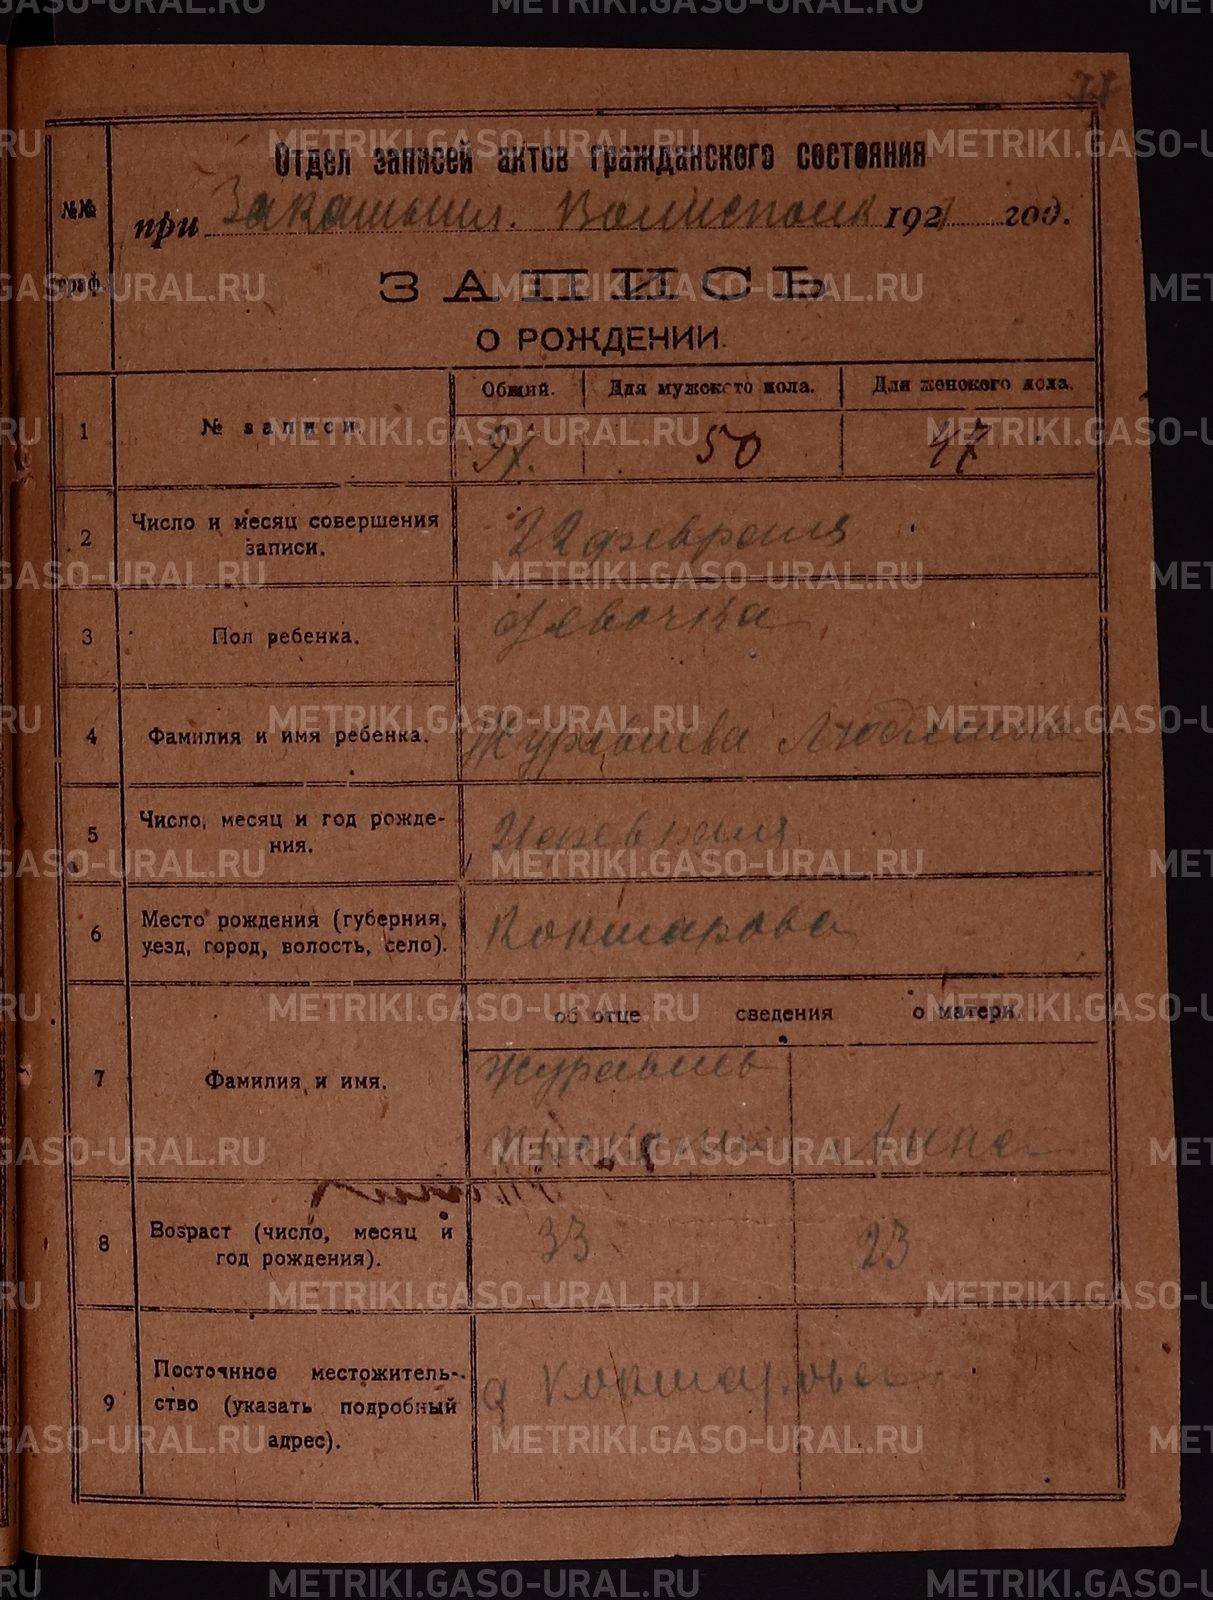 Отдел записей актов гражданского состояния
при Закамышл. Волисполк 1921 год.
№№ граф.
ЗАПИСЬ
О РОЖДЕНИИ.
Общий. Для мужского пола. Для женского пола.
1 № записи. 97. 50 47
2 Число и месяц совершения записи. 22 февраля
3 Пол ребенка. Девочка
4 Фамилия и имя ребенка. Журавлева
5 Число, месяц и год рождения. февраля
6 Место рождения (губерния, уезд, город, волость, село). Кокшарова
об отце сведения о матери.
7 Фамилия и имя. Журавлев
Анна
8 Возраст (число, месяц и год рождения). 33 23
9 Постоянное местожительство (указать подробный адрес). д Кокшарова
METRIKI.GASO-URAL.RU